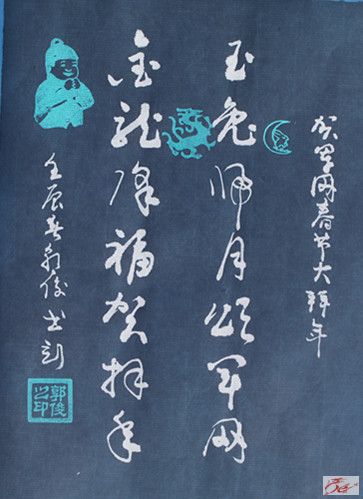 贺军网春节大拜年
玉兔归月颂军网
金龙降福贺拜年
壬辰春郭俊书刻
郭俊之印